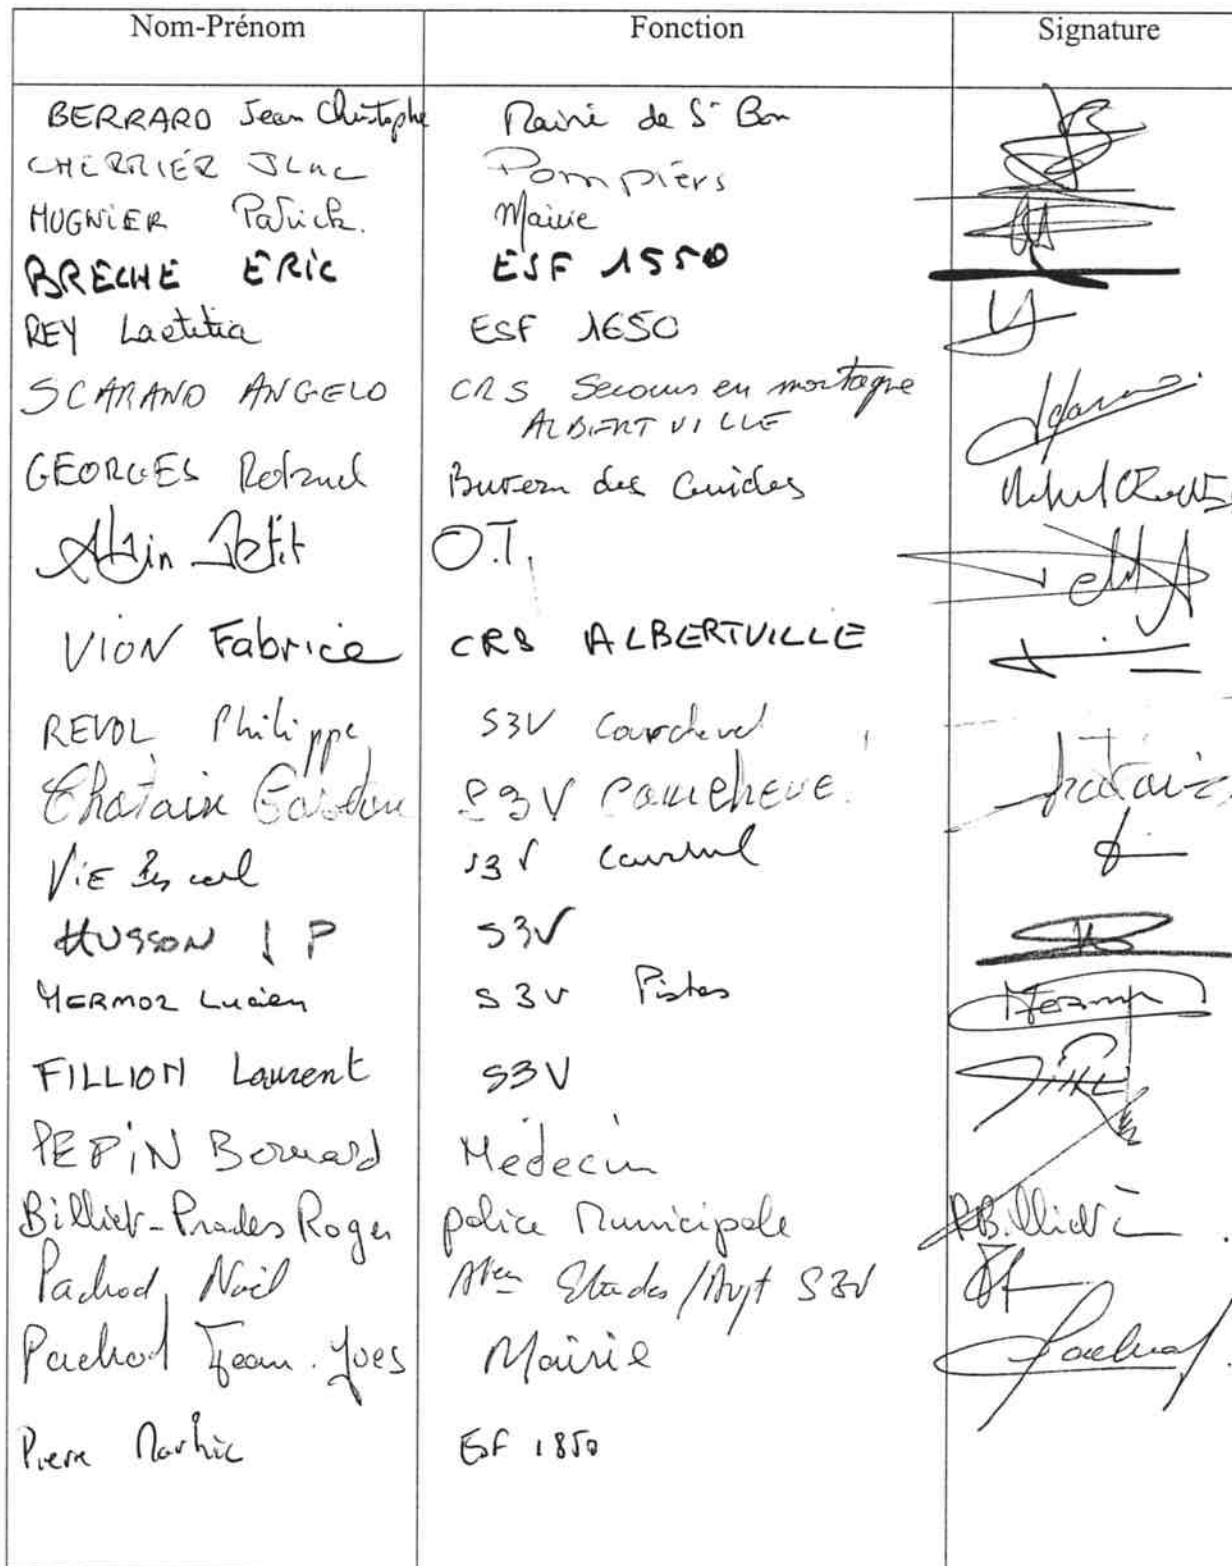 Nom-Prénom Fonction Signature
BERRARD Jean Christophe Mairie de St Bon
CHERRIER JLuc Pompiers
MUGNIER Patrick. Mairie
BRECHE ERIC ESF 1550
REY Laetitia ESF 1650
SCARANO ANGELO CRS Secours en montagne
ALBERTVILLE
GEORGES Roland Bureau des Guides
Alain Petit O.T. Petit A
VION Fabrice CRS ALBERTVILLE
REVOL Philippe S3V Courchevel
Chatain Gaston S3V Courchevel
VIE Pascal S3V Courchevel
HUSSON J P S3V
MERMOZ Lucien S3V Pistes
FILLION Laurent S3V
PEPIN Bernard Médecin
Billiet-Prades Roger police Municipale
Pachod Noël Etudes / S3V
Pachod Jean.Yves Mairie Pachod
Pierre ESF 1850